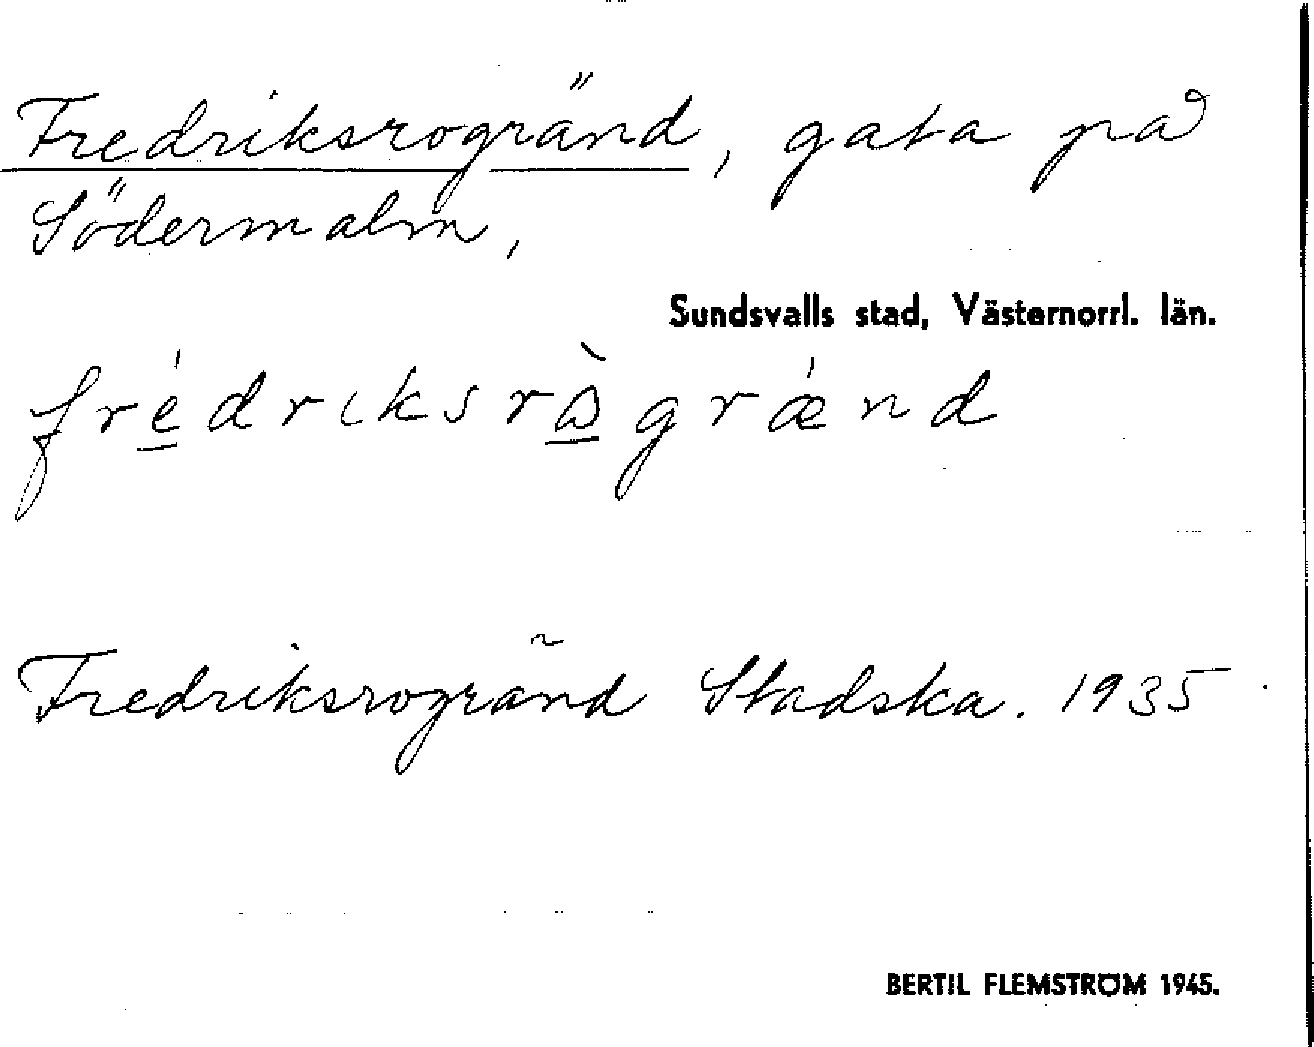 Fredriksrogränd, gata på
Södermalm,
Sundsvalls stad, Västernorrl. län.
frédriksrògrǽnd
Fredriksrogränd Stadska. 1935
BERTIL FLEMSTRÖM 1945.